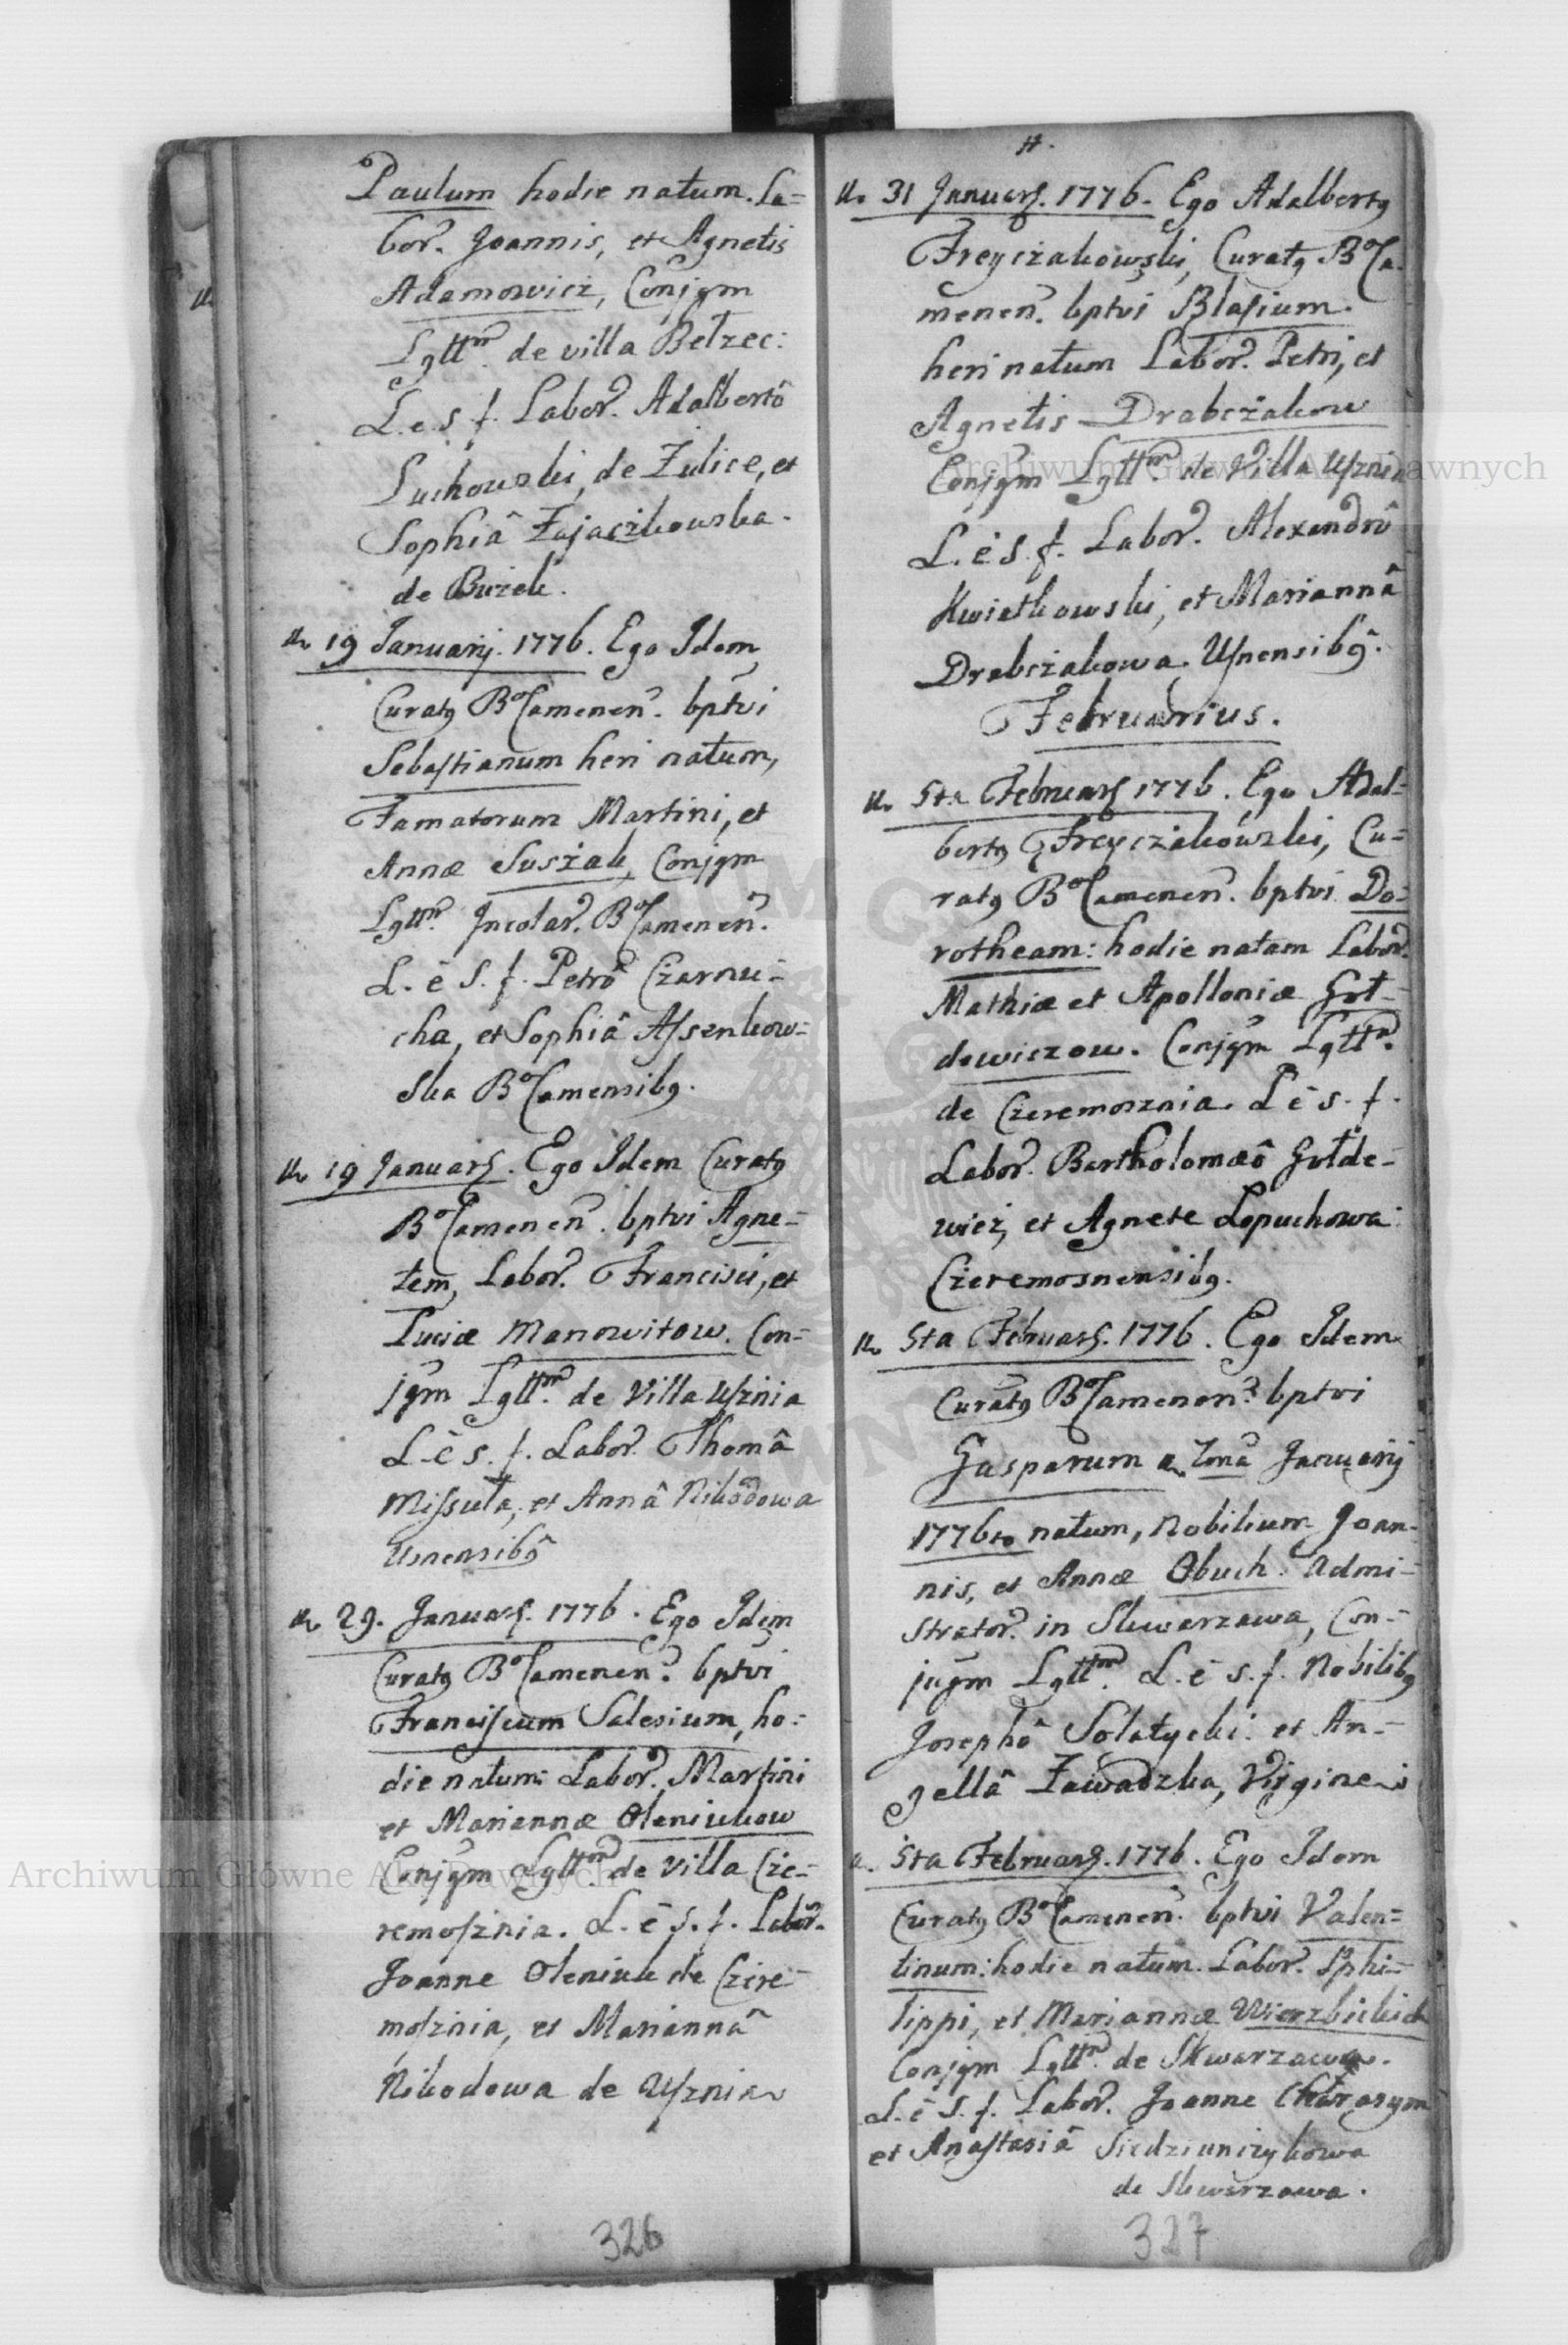 Paulum hodie natum. La=
bor. Joannis, et Agnetis
Adamowicz, Conjgm
Lgttm. de villa Bełzec:
L. e. s. f. Labor. Adalbertô
Luchowski, de Zulice, et
Sophiâ Zajączkowska.
de Bużek.
19 Januarij. 1776. Ego Idem
Curatg BoCamenen. bptvi
Sebastianum heri natum,
Famatorum Martini, et
Annæ Susżak, Conjgm
Lgttm. Incolar. BoCamenen.
L. ê S. f. Petrô Czarnu=
cha, et Sophiâ Assenkow=
ska BoCamensibg.
19 Januarij. Ego Idem Curatg
BoCamenen. bptvi Agne=
tem, Labor. Francisci, et
Luciæ Manowitow. Con=
jgm Lgttm. de Villa Usznia
L. ê s. f. Labor. Thomâ
Missuła, et Annâ Nikodowa
Usnensibg
29. Januarij. 1776. Ego Idem
Curatg BoCamenen. bptvi
Franciscum Salesium, ho=
die natum: Labor. Martini
et Mariannæ Oleniukow
Conjgm Lgttm. de villa Cze=
remosznia. L. ê s. f. Labor.
Joanne Oleniuk de Czere=
mosznia, et Mariannâ
Nikodowa de Usznia
326
31 Januarij. 1776. Ego Adalbertg
Freyczakowski, Curatg BoCa.
menen. bptvi Blasium.
heri natum Labor. Petri, et
Agnetis Drabczakow
Conjgm Lgttm. de Villa Usznia
L. ê S. f. Labor. Alexandrô
Kwiatkowski, et Mariannâ
Drabczakowa. Usnensibg.
Februarius.
5ta Februarij 1776. Ego Adal=
bertg Freyczakowski, Cu=
ratg BoCamenen. bptvi Do=
rotheam: hodie natam Labor.
Mathiæ et Apolloniæ Goł=
dewiczow. Conjgm Lgttm.
de Czeremosznia. L ê s. f.
Labor. Bartholomæô Gołde=
wicz, et Agnete Lopuchowa
Czeremosnensibg.
5ta Februarij. 1776. Ego Idem
Curatg BoCamenen. bptvi
Gasparum a 7ma Januarij
1776to natum, Nobilium Joan=
nis, et Annæ Obuch. Admi=
strator. in Skwarzawa, Con=
jugm Lgttm. L. ê s. f. Nobilibg
Josephô Solatycki. et An=
gellâ Zawadzka, Virgine
5ta Februarij. 1776. Ego Idem
Curatg BoCamenen. bptvi Valen=
tinum: hodie natum. Labor. Phi=
lippi, et Mariannæ Wierzbickich
Conjgm Lgttm. de Skwarzawa.
L. ê S. f. Labor. Joanne
et Anastasiâ Siedziuniczykowa
de Skwarzawa.
327
Archiwum Główne Akt Dawnych
Archiwum Główne Akt Dawnych